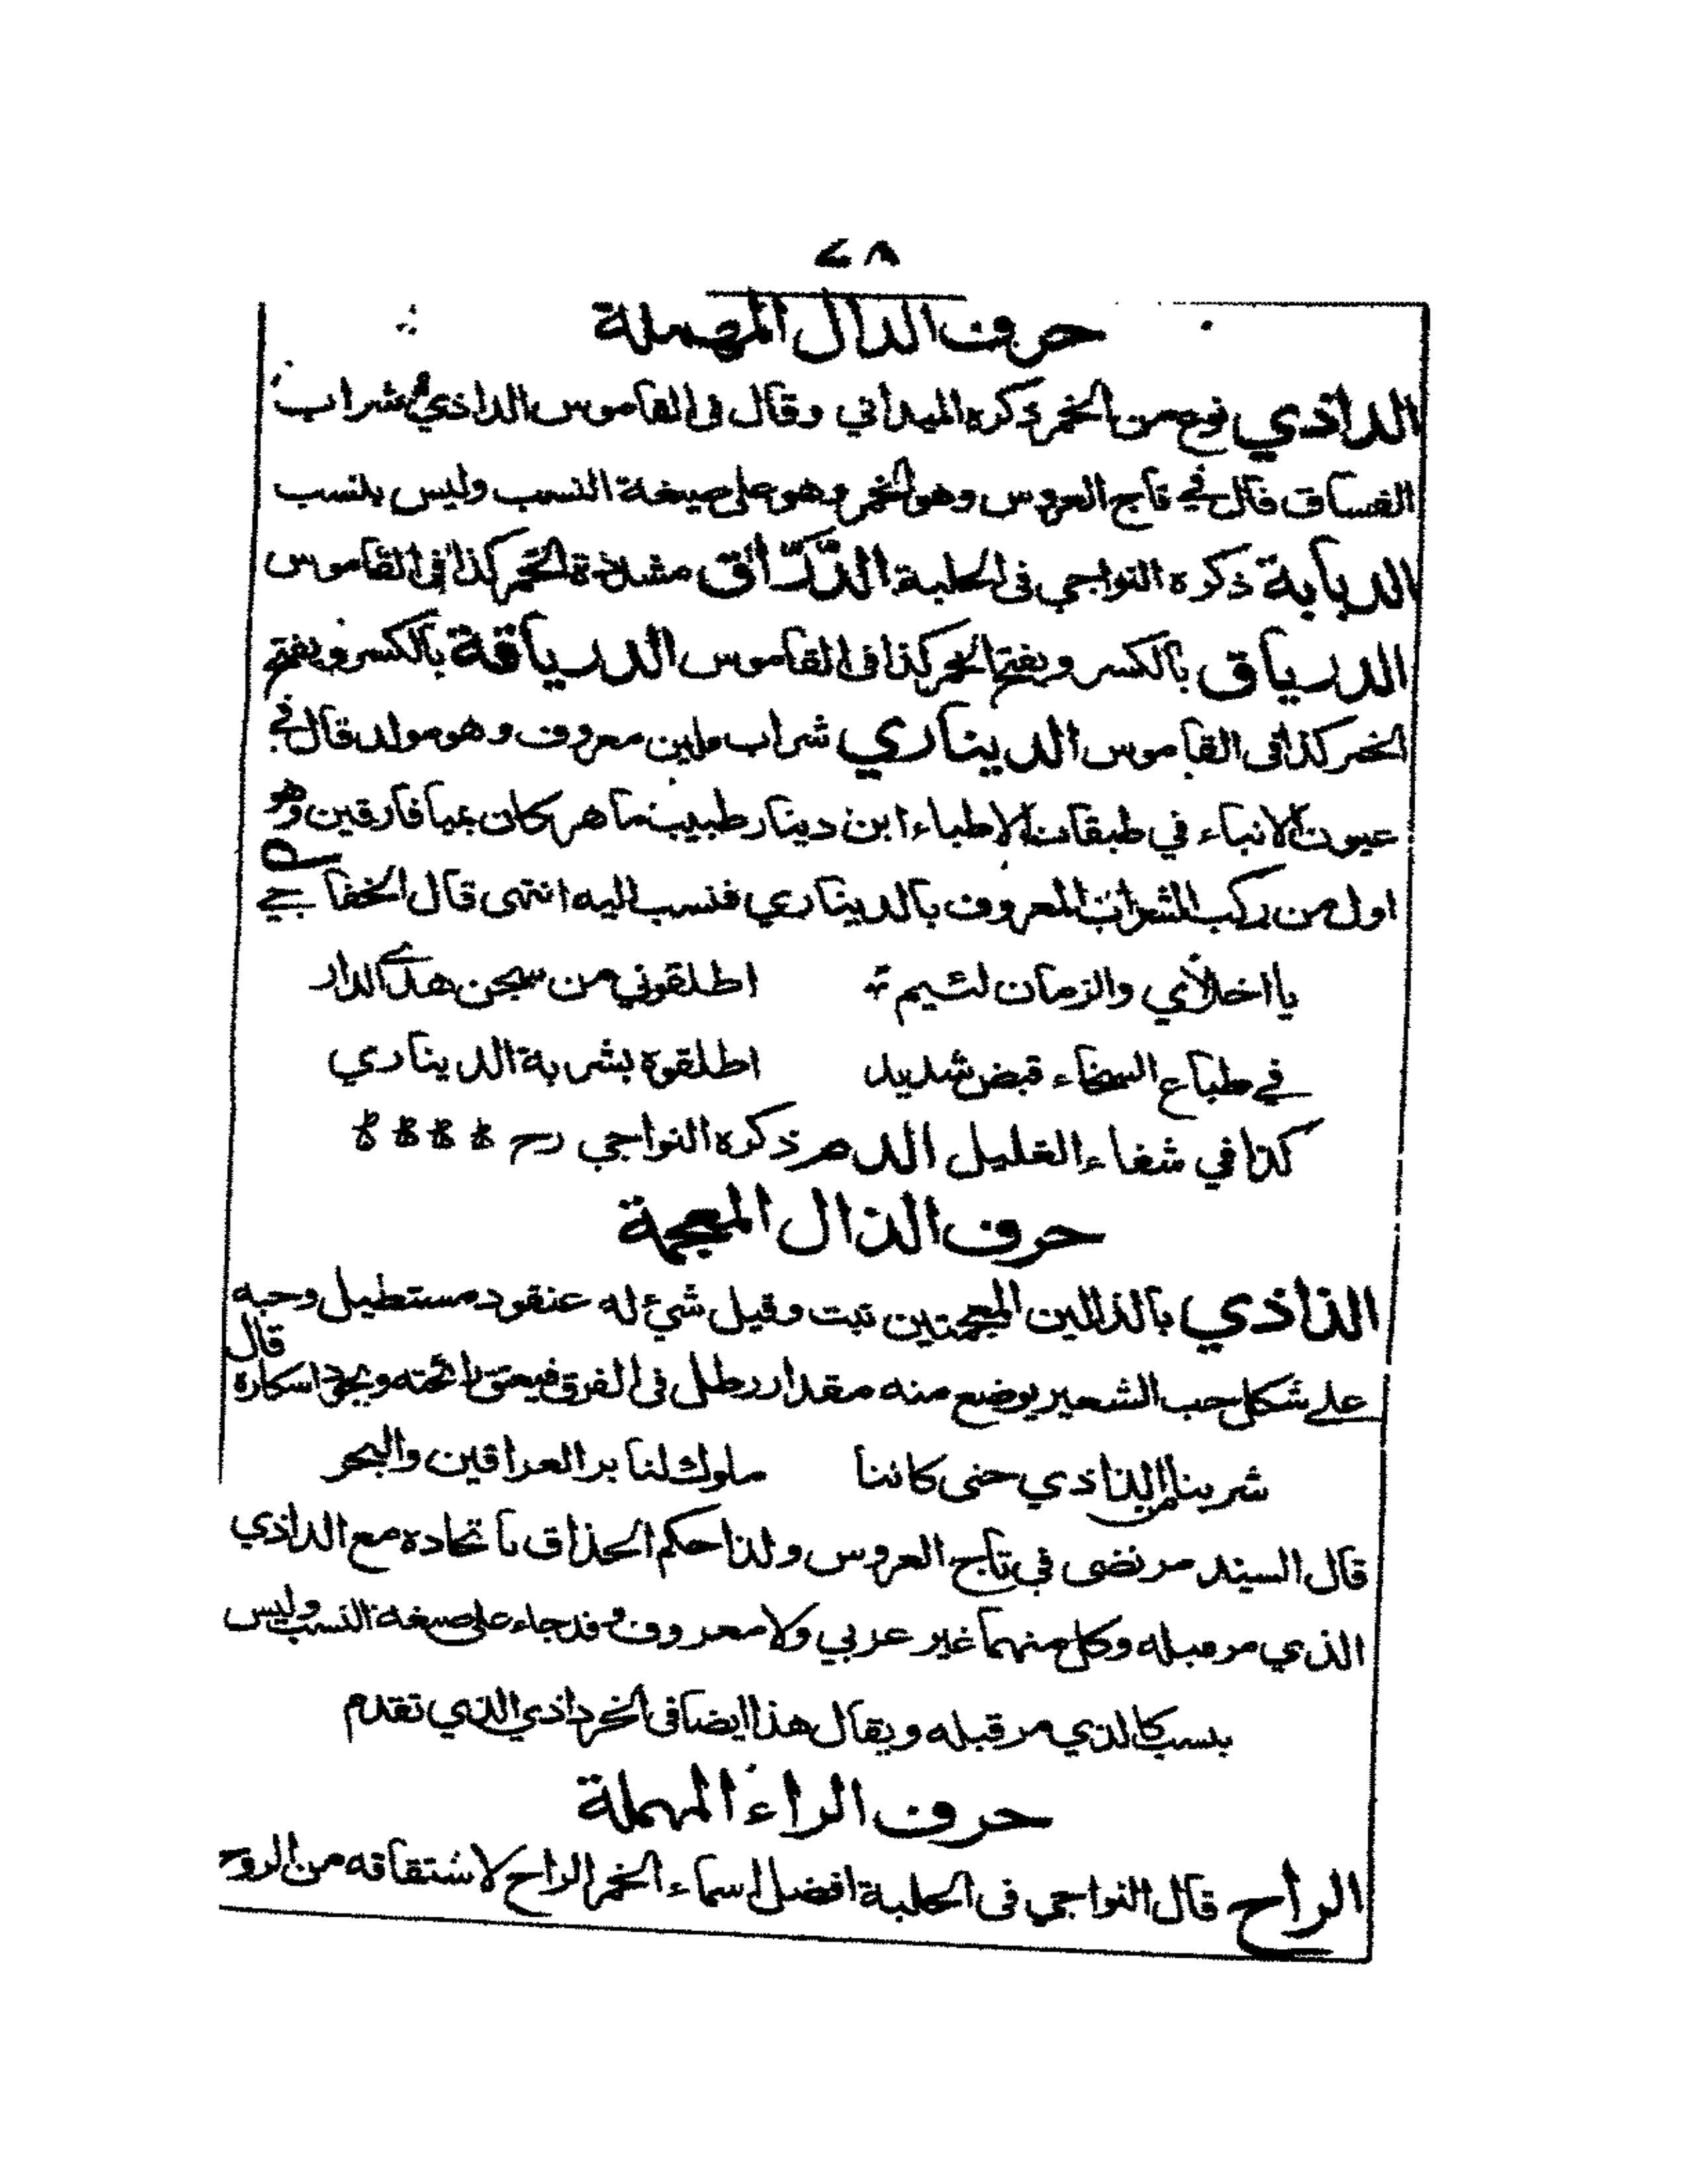 ٢٨
حرف الدال المهملة
الداذي نوع من الخمر ذكره الميداني وقال في القاموس الداذي شراب
الفساق قال في تاج العروس وهو الخمر وهو على صيغة النسب وليس بنسب
الدبابة ذكره النواجي في الحلبة الدَّرَّاق مشددة الخمر كذا في القاموس
الدرياق بالكسر ويفتح الخمر كذا في القاموس الدرياقة بالكسر ويفتح
الخمر كذا في القاموس الديناري شراب ملين معروف وهو مولد قال في
عيون الانباء في طبقات الاطباء ابن دينار طبيب ماهر كان بميافارقين وهو
اول من ركب الشراب المعروف بالديناري فنسب اليه انتهى قال الخفاجي
يا اخلاي والزمان لئيم اطلقوني من سجن هذي الدار
في طباع السخاء قبض شديد اطلقوه بشربة الديناري
كذا في شفاء الغليل الدم ذكره النواجي رح
حرف الذال المعجمة
الذاذي بالذالين المعجمتين نبت وقيل شيء له عنقود مستطيل وحبه
على شكل حب الشعير يوضع منه مقدار رطل في الفرق فيعبق رائحته ويجود اسكاره قال
شربنا من الذاذي حتى كاننا ملوك لنا بر العراقين والبحر
قال السيد مرتضى في تاج العروس ولذا حكم الحذاق باتحاده مع الداذي
الذي مر قبله وكل منهما غير عربي ولا معروف وقد جاء على صيغة النسب وليس
بنسب كالذي مر قبله ويقال هذا ايضا في الخرداذي الذي تقدم
حرف الراء المهملة
الراح قال النواجي في الحلبة افضل اسماء الخمر الراح لاشتقاقه من الروح